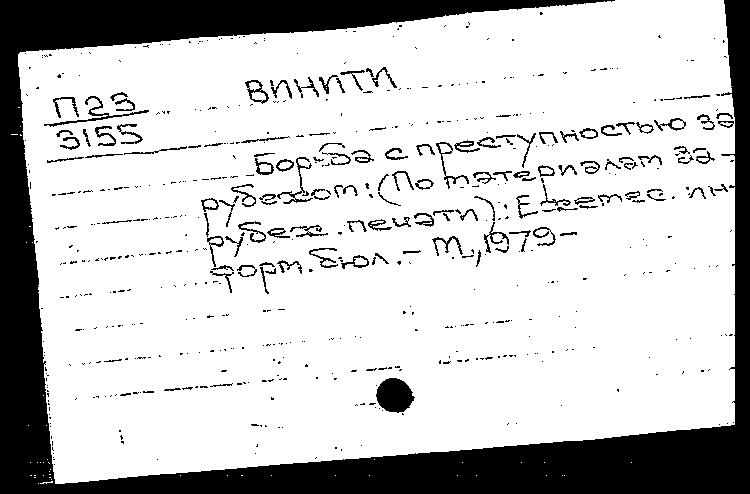 П23
3155
ВИНИТИ
Борьба с преступностью за
рубежом: (По материалам за-
рубеж. печати): Ежемес. ин-
форм. бюл. - М., 1979-